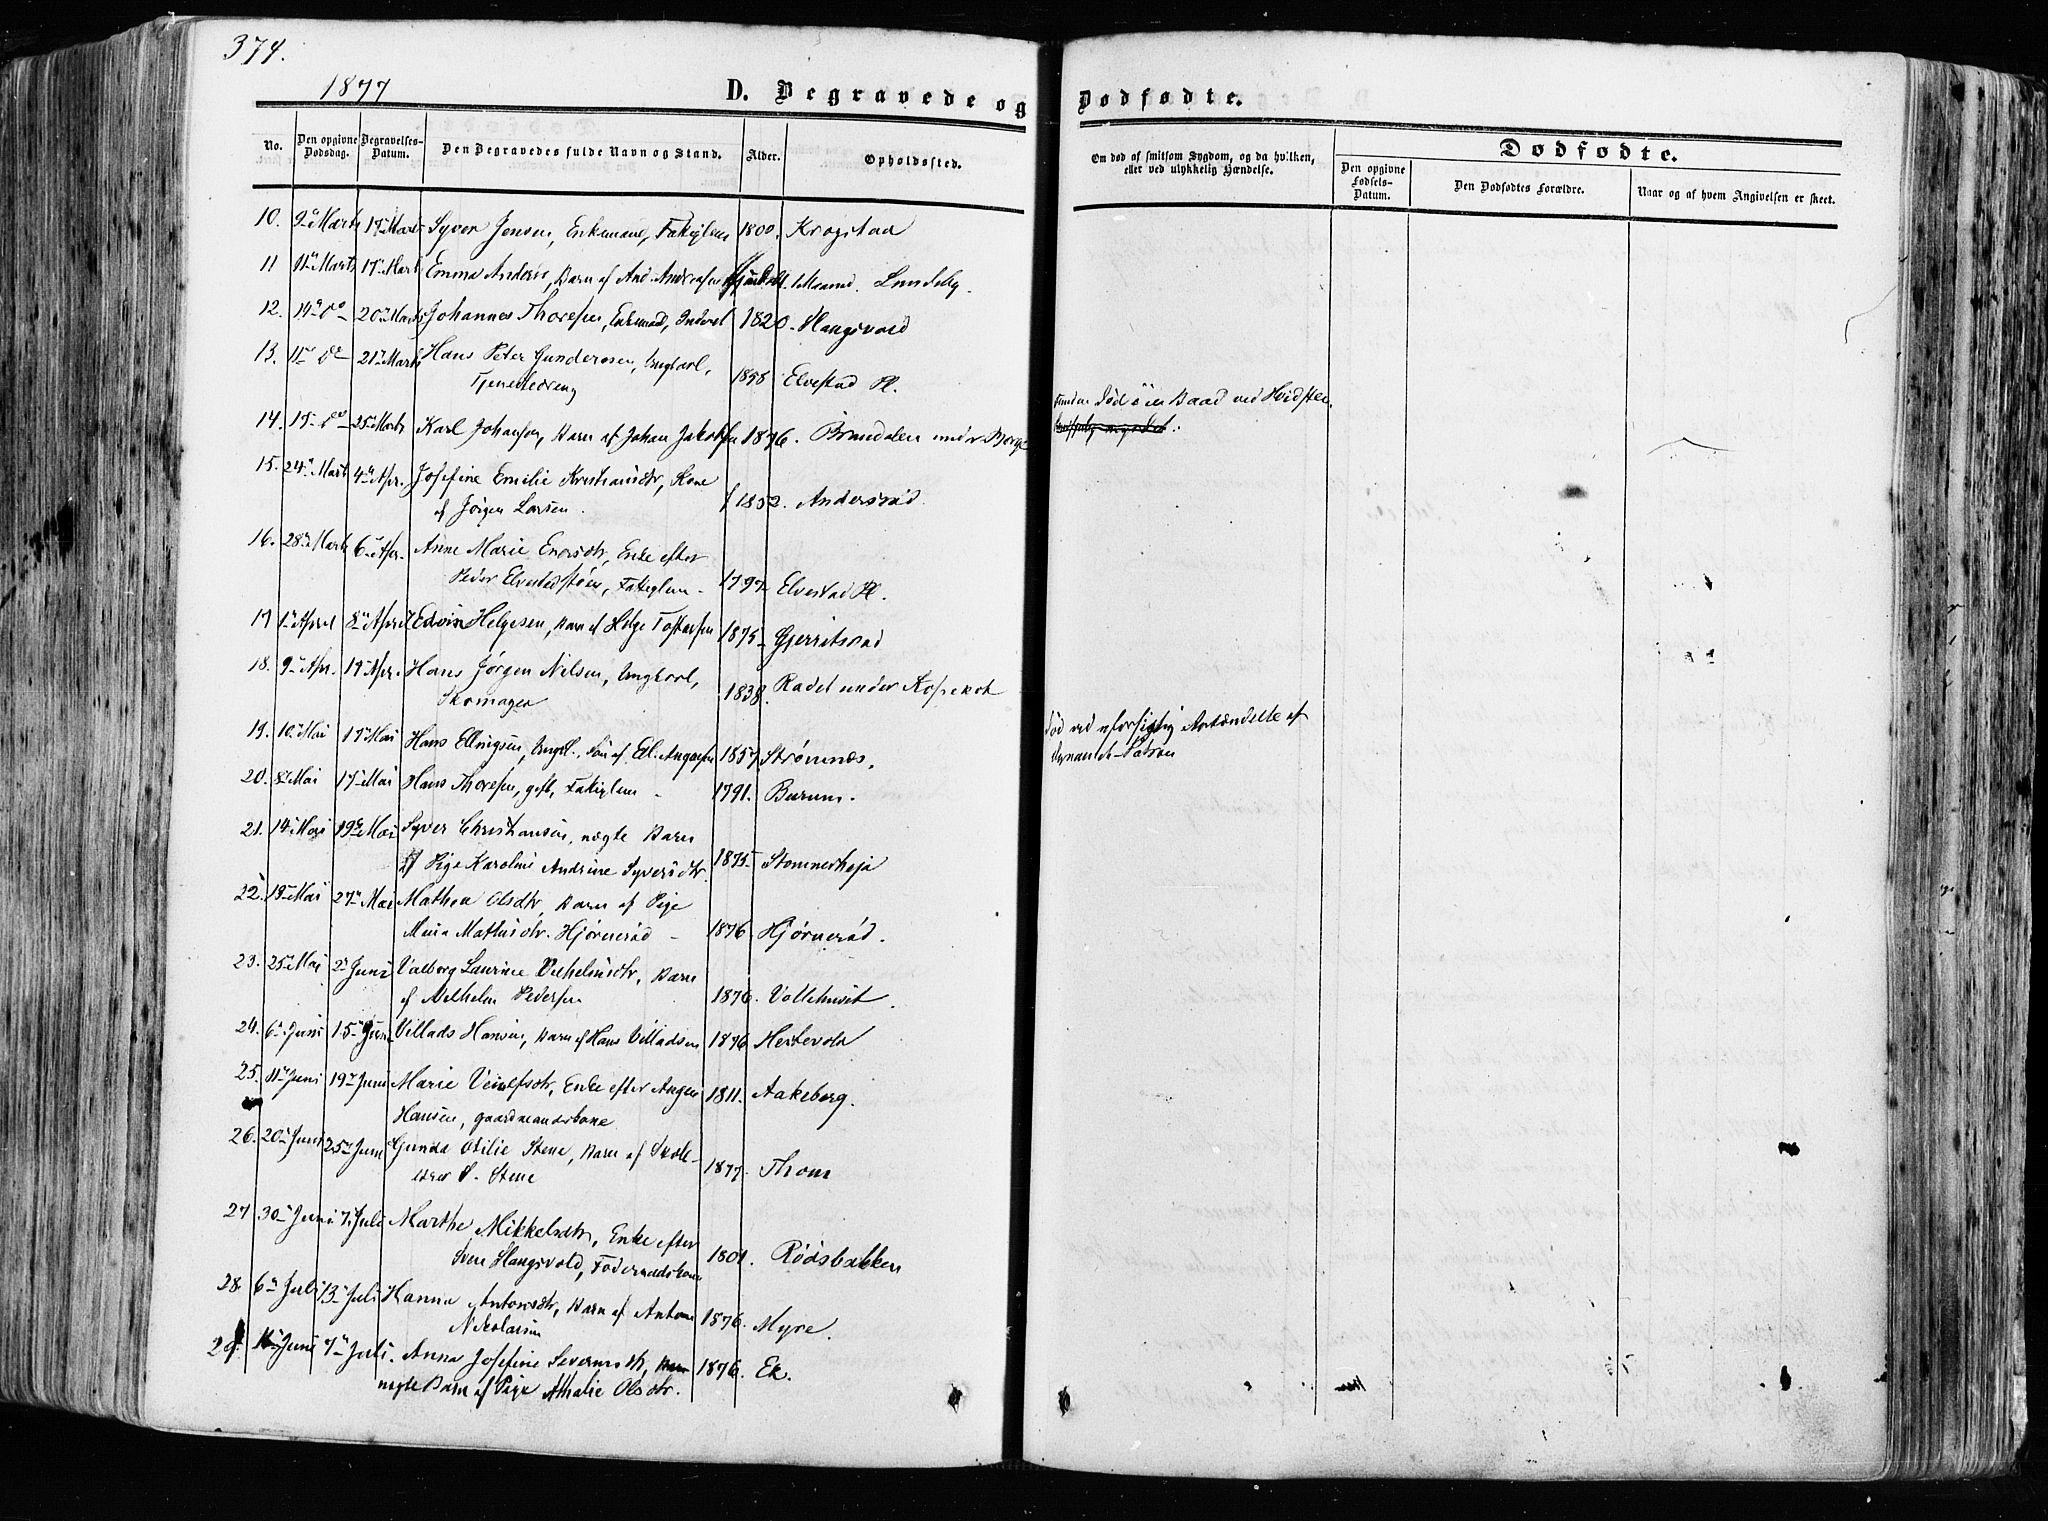 374.
1877
D. Begravede og Dødfødte.
No.
Den opgivne Dødsdag.
Begravelses-Datum.
Den Begravedes fulde Navn og Stand.
Alder.
Opholdssted.
Om død af smitsom Sygdom, og da hvilken, eller ved ulykkelig Hændelse.
Dødfødte.
Den opgivne Fødsels-Datum.
Den Dødfødtes Forældre.
Naar og af hvem Angivelsen er skeet.
10. 9de Marts 17de Marts Syver Jensen, Enkemand, Fattiglem 1800. Krogstad
11 11te Marts 17de Marts Emma Andersd, Barn af And. Andreasen Maaned. Lundeby.
12. 14de do 20de Marts Johannes Thoresen, Enkemand, Inderst 1820. Haugsvold
13. 11te do 21de Marts Hans Peter Gundersen, Ungkarl,
Tjenestedreng 1858 Elvestad Pl. Funden død i en Baad ved Hvidsten.
14. 15de do 25de Marts Karl Johansen, Barn af Johan Jakobsen 1876. Brundalen under Borge
15. 24de Marts 4de Apr. Josefine Emilie Kristiansdtr, Kone
af Jørgen Larsen. 1852. Andersrød
16. 28de Marts 6te Apr. Anne Marie Enersdtr, Enke efter
Peder Elvestadstøen, Fattiglem 1797 Elvestad Pl.
17 1ste April 8de April Edvin Helgesen, Barn af Helge Tostensen 1875 Gjerritsrød
18. 9de Apr. 17de Apr. Hans Jørgen Nilsen, Ungkarl,
Skomager 1838. Rødet under Kopeholt
19. 10de Mai 17de Mai Hans Ellingsen, Ungk., Søn af El. Aagesen 1857 Strømnæs. Død ved uforsigtig Antændelse af
Dynamit-Patron
20. 8de Mai 17de Mai Hans Thoresen, gift, Fattiglem 1791. Burum.
21. 14de Mai 19de Mai Syver Christiansen, uægte Barn
af Pige Karoline Andrine Syversdtr. 1875 Stommerhøja
22. 18de Mai 27de Mai Mathea Olsdtr, Barn af Pige
Maria Mathisdtr. Hjørnerød 1876. Hjørnerød.
23. 25de Mai 2den Juni Valborg Laurine Vilhelmsdtr, Barn
af Vilhelm Pedersen 1876. Vollehusit
24. 6te Juni 15de Juni Villads Hansen, Barn af Hans Villadsen 1876 Hestevold
25. 11te Juni 19de Juni Marie Veulefsdtr, Enke efter Aagen
Hansen, gaardmanderkone 1811. Aakeberg.
26. 20de Juni 25de Juni Gunda Otilie Stene, Barn af Skole-
lærer P. Stene 1877. Thom
27 30te Juni 7de Juli Marthe Mikkelsdtr, Enke efter
Sven Haugsvold, Føderaadskone 1801. Rødsbakken
28. 6te Juli 13de Juli Hanna Antonsdtr, Barn af Anton
Nikolaisen 1876. Myre.
29. 11te Juni 7de Juli. Anna Josefine Severinsdtr,
uægte Barn af Pige Athalie Olsdtr. 1876. Ek.